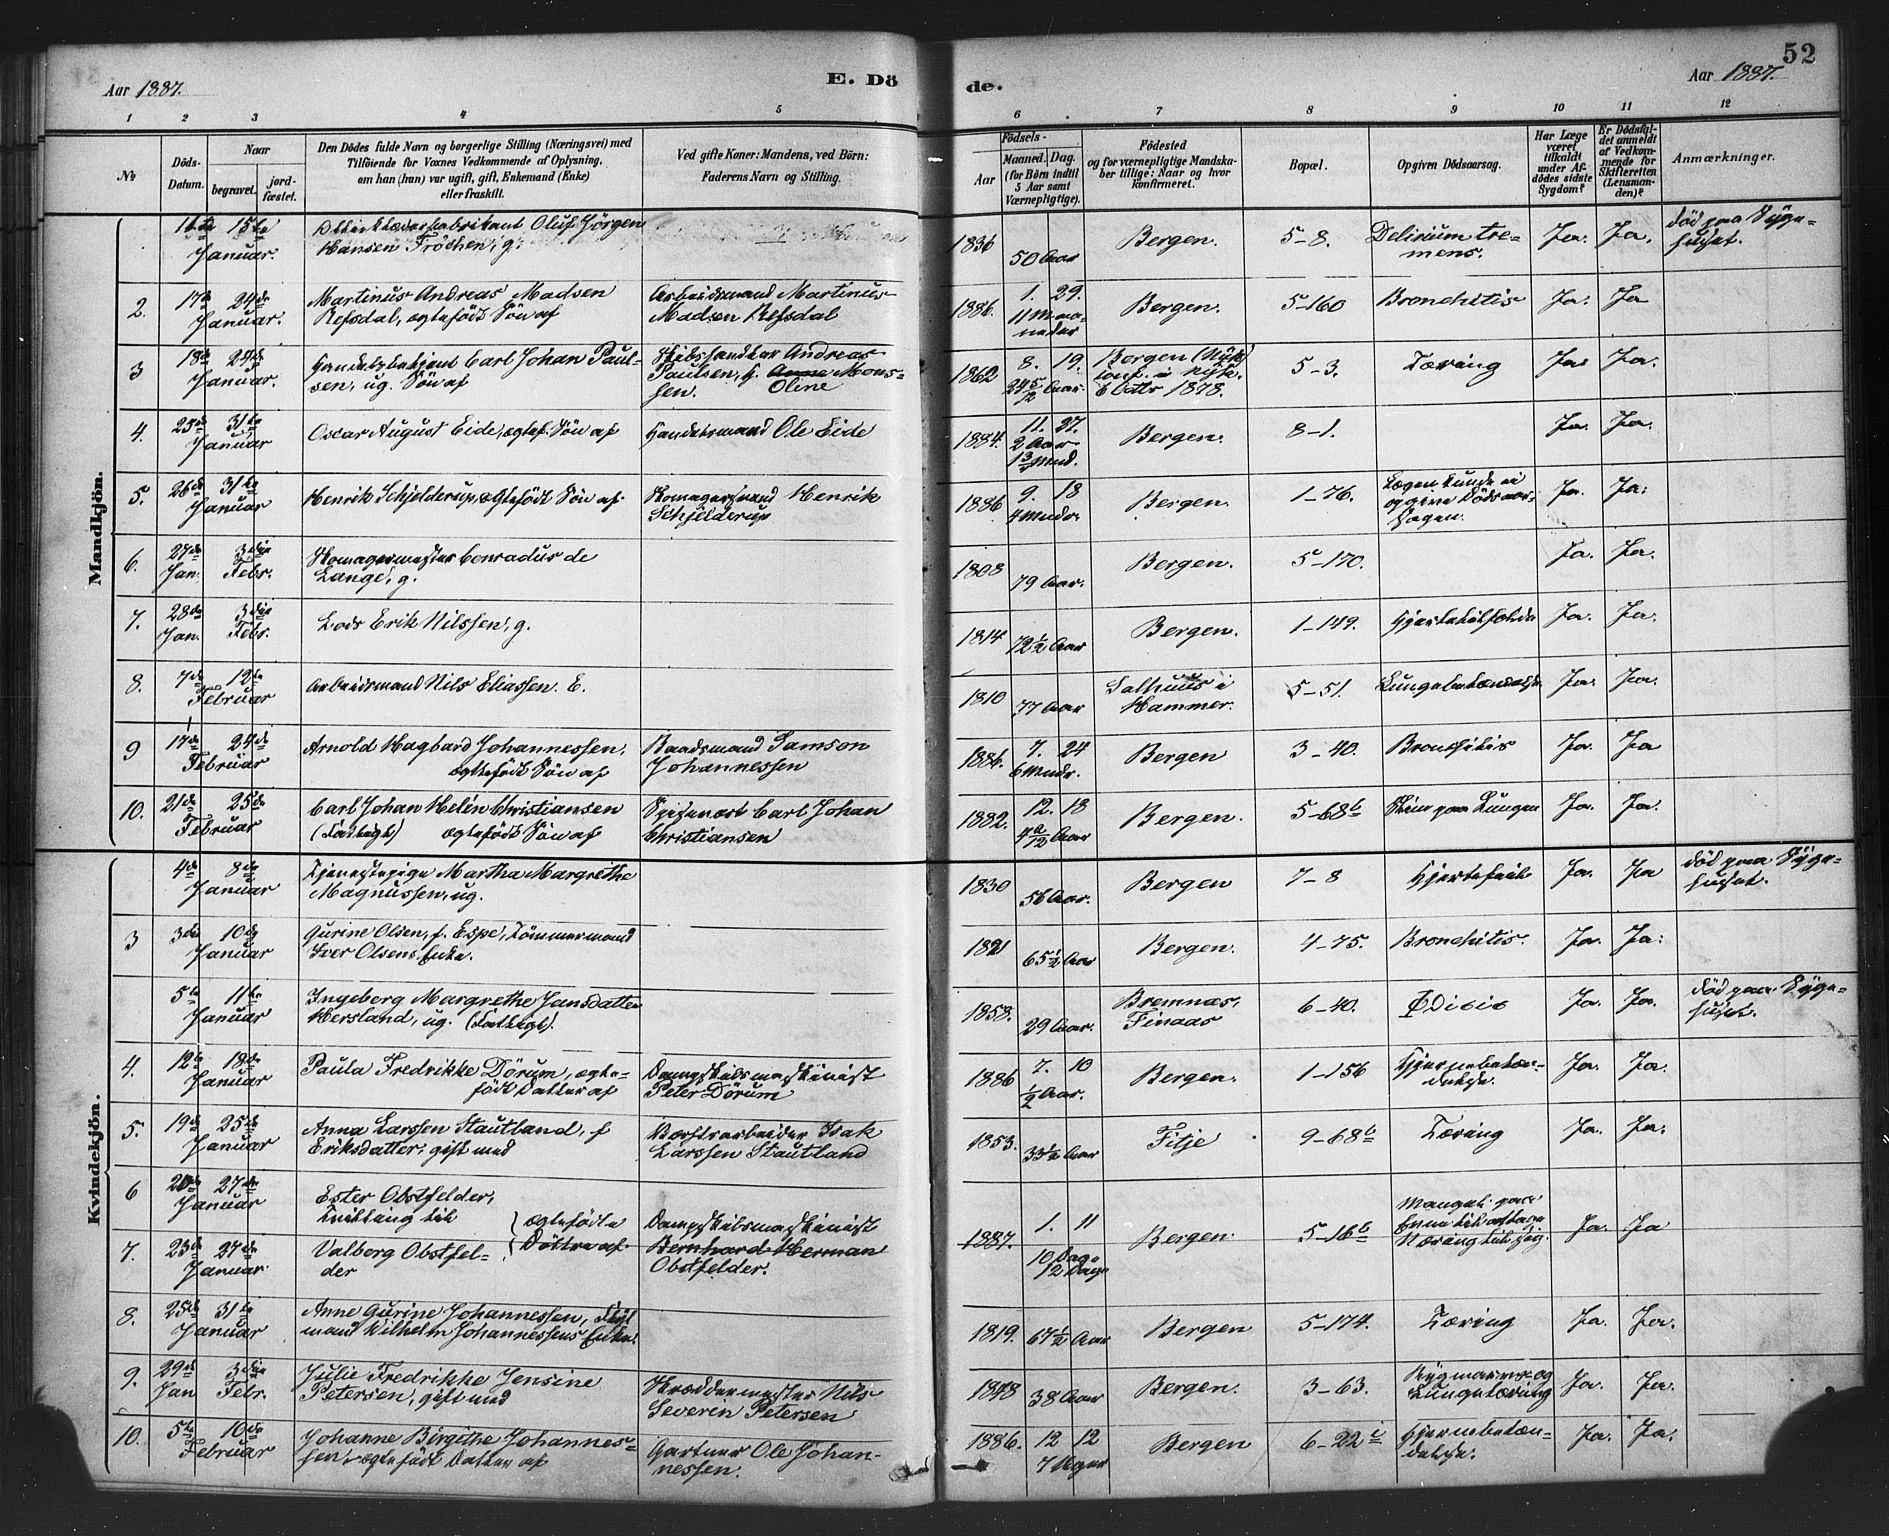 52
Aar 1887.
E. Dö
de.
Aar 1887.
1 2 3 4 5 6 7 8 9 10 11 12
No
Döds-
Datum.
Naar
begravet.
jord-
fæstet.
Den Dödes fulde Navn og borgerlige Stilling (Næringsvei) med
Tilföiende for Voxnes Vedkommende af Oplysning,
om han (hun) var ugift, gift, Enkemand (Enke)
eller fraskilt.
Ved gifte Koner: Mandens, ved Börn:
Faderens Navn og Stilling.
Födsels-
Aar
Maaned. Dag.
(for Börn indtil
5 Aar samt
Værnepligtige).
Födested
og for værnepligtige Mandska-
ber tillige: Naar og hvor
konfirmeret.
Bopæl.
Opgiven Dödsaarsag.
Har Læge
været
tilkaldt
under Af-
dödes sidste
Sygdom?
Er Dödsfal-
det anmeldt
af Vedkom-
mende for
Skifteretten
(Lensman-
den)?
Anmærkninger.
Mandkjön.
15de
Januar.
Oluf Jörgen
Hansen Fröchen, g.
1836
50 Aar
Bergen.
5-8.
Delirium tre-
mens.
Ja. Ja.
död paa Syge-
huset.
2.
17de 24de
Januar.
Martinus Andreas Madsen
Refsdal, ægtefödt Sön af
Arbeidsmand Martinus
Madsen Refsdal
1886.
1. 29.
11 Maa-
neder
Bergen.
5-160
Bronchitis
Ja. Ja
3
18de 24de
Januar.
Handelsbetjent Carl Johan Paul-
sen, ug. Sön af
Skibshandler Andreas
Paulsen, f. Anne Mons-
sen. Oline
1862
8. 19.
24 5/12 Aar.
Bergen (Nyk)
conf. i Nyk.
6 Octbr 1878.
5-3.
Tæring
Ja. Ja.
4.
25de 31te
Januar
Oscar August Eide, ægtef. Sön af
Handelsmand Ole Eide
1884.
11. 27.
2 Aar
1 3/4 Mnd.
Bergen.
8-1.
Ja. Ja.
5.
26de 31te
Januar
Henrik Schjelderup, ægtefödt Sön af
Henrik
Schjelderup
1886
9. 18
4 Mndr.
Bergen.
1-76.
Lægen kunde ei
opgive Dödsaar-
sagen.
Ja. Ja.
6.
27de 3die
Jan. Febr.
Conradus de
Lange, g.
1808
79 Aar.
Bergen.
5-170.
Ja. Ja.
7.
28de 3die
Jan. Febr.
Lods Erik Nilssen, g.
1814
72 1/2 Aar
Bergen.
1-149.
Hjertetilfælde
Ja. Ja.
8.
7de 12te
Februar
Arbeidsmand Nils Eliassen. E.
1810
77 Aar
Salhuus i
Hammer.
5-51.
Lungebetændelse
Ja. Ja.
9
17de 24de
Februar
Arnold Hagbard Johannessen,
ægtefödt Sön af
Baadsmand Samson
Johannessen
1886.
7. 24
6 Mndr.
Bergen
3-40.
Bronchitis
Ja. Ja
10.
21de 25de
Februar
Carl Johan Helén Christiansen
(Fattigt) ægtefödt Sön af
Carl Johan
Christiansen
1882.
12. 18
Bergen.
5-68b
Slim paa Lungen
Ja. Ja.
Kvindekjön.
4de 8de
Januar
Tjenestepige Martha Margrethe
Magnussen, ug.
1830
56 Aar.
Bergen
7-8
Hjertefeil
Ja. Ja
död paa Syge-
huset.
3
3die 10de
Januar
Gurine Olsen, f. Espe, Tömmermand
Iver Olsens Enke.
1821
65 1/2 Aar
Bergen.
4-75.
Bronchitis.
Ja. Ja.
5te 11te
Januar
Ingeberg Margrethe Jansdatter
Hersland, ug. (Fattigt).
1858.
29 Aar.
Bremnæs,
Finaas
6-40.
Ja. Ja.
död paa Syge-
huset.
4.
12te 18de
Januar
Paula Fredrikke Dörum, ægte-
födt Datter af
Dampskibsmaskinist
Peter Dörum
1886
7. 10
1/2 Aar.
Bergen.
1-156
Hjernebetæn-
delse.
Ja. Ja.
5.
19de 25de
Januar
Anna Larssen Stautland, f
Eriksdatter, gift med
Værftsarbeider Isak
Larssen Stautland
1853.
33 1/2 Aar
Fitje
9-68b
Tæring
Ja. Ja.
6
27de
Januar
Ester Obstfelder,
Tvilling til
7.
23de 27de
Januar
Valborg Obstfel-
der
ægtefödte
Döttre af
Dampskibsmaskinist
Bernhard Herman
Obstfelder.
1887.
1. 11
10 Dage
12 Dage
Bergen
5-16b
Mangel paa
Evne til at tage
Næring til sig.
Ja. Ja
8.
25de 31te
Januar
Anne Gurine Johannessen,
Wilhelm Johannessens Enke.
1819.
67 1/2 Aar
Bergen
5-174.
Tæring
Ja. Ja.
9.
29de 3die
Jan Febr.
Julie Fredrikke Jensine
Petersen, gift med
Skræddermester Nils
Severin Petersen
1848
38 Aar
Bergen.
3-63.
Rygmarvs- og
Lungetæring
Ja. Ja.
10.
5te 10de
Februar
Johanne Birgithe Johannes-
sen, ægtefödt Datter af
Gartner Ole Johan-
nessen.
1886.
12 12
7 Uger
Bergen
6-22c
Hjernebetæn-
delse.
Ja. Ja.